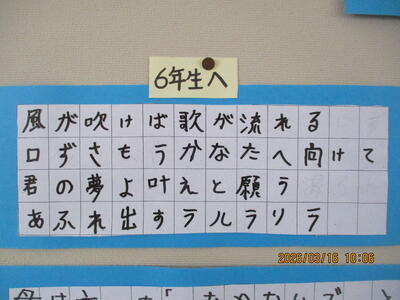 6年生へ
風が吹けば歌が流れる
口ずさもうかなたへ向けて
君の夢よ叶えと願う
あふれ出すラルラリラ
2026/03/16 10:06